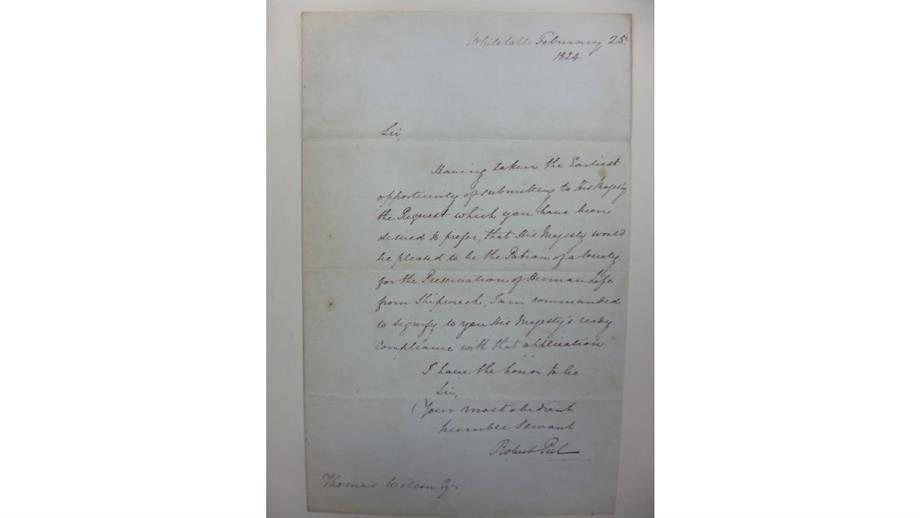 Whitehall February 25
1824
Sir,
Having taken the Earliest
opportunity of submitting to His Majesty
the Request which you have been
desired to prefer, that His Majesty would
be pleased to be the Patron of a Society
for the Preservation of Human Life
from Shipwreck, I am commanded
to signify to you His Majesty's ready
compliance with that application.
I have the honor to be
Sir,
Your most obedient
humble Servant
Robert Peel
Thomas Wilson Esq.